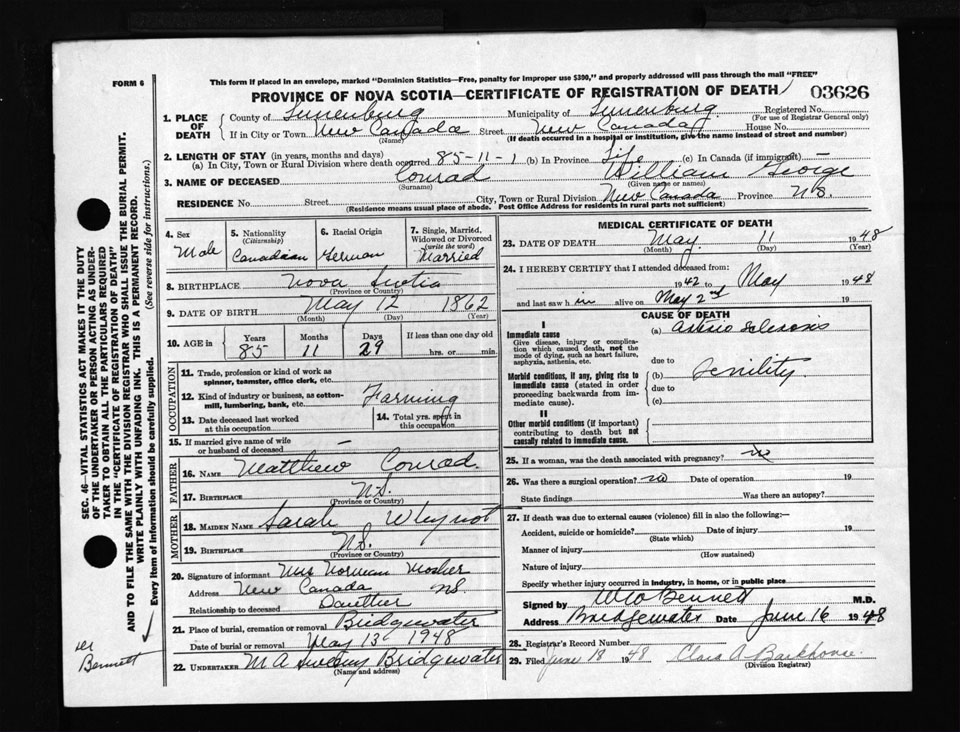 FORM 6
This form if placed in an envelope, marked "Dominion Statistics—Free, penalty for improper use $300," and properly addressed will pass through the mail "FREE"
PROVINCE OF NOVA SCOTIA—CERTIFICATE OF REGISTRATION OF DEATH
03626
1. PLACE OF DEATH
County of Lunenburg Municipality of Lunenburg Registered No.
(For use of Registrar General only)
If in City or Town New Canada Street New Canada House No.
(Name) (If death occurred in a hospital or institution, give the name instead of street and number)
2. LENGTH OF STAY (in years, months and days)
(a) In City, Town or Rural Division where death occurred 85-11-1 (b) In Province Life (c) In Canada (if immigrant)
3. NAME OF DECEASED Conrad William George
(Surname) (Given name or names)
RESIDENCE No. Street City, Town or Rural Division New Canada Province N.S.
(Residence means usual place of abode. Post Office Address for residents in rural parts not sufficient)
4. Sex Male
5. Nationality (Citizenship) Canadian
6. Racial Origin German
7. Single, Married, Widowed or Divorced (write the word) Married
8. BIRTHPLACE Nova Scotia
(Province or Country)
9. DATE OF BIRTH May 12 1862
(Month) (Day) (Year)
10. AGE in Years Months Days If less than one day old
85 11 29 hrs. or min.
OCCUPATION
11. Trade, profession or kind of work as spinner, teamster, office clerk, etc.
12. Kind of industry or business, as cotton-mill, lumbering, bank, etc. Farming
13. Date deceased last worked at this occupation
14. Total yrs. spent in this occupation
15. If married give name of wife or husband of deceased —
FATHER
16. NAME Matthew Conrad
17. BIRTHPLACE N.S.
(Province or Country)
MOTHER
18. MAIDEN NAME Sarah Wheynot
19. BIRTHPLACE N.S.
(Province or Country)
20. Signature of informant Mrs Norman Mosher
Address New Canada NS.
Relationship to deceased Daughter
21. Place of burial, cremation or removal Bridgewater
Date of burial or removal May 13 1948
22. UNDERTAKER M A Sweeny Bridgewater
(Name and address)
MEDICAL CERTIFICATE OF DEATH
23. DATE OF DEATH May 11 1948
(Month) (Day) (Year)
24. I HEREBY CERTIFY that I attended deceased from:
1942 to May 1948
and last saw h im alive on May 2nd 19
CAUSE OF DEATH
I
Immediate cause
Give disease, injury or complication which caused death, not the mode of dying, such as heart failure, asphyxia, asthenia, etc.
(a) Arterio sclerosis
due to
Morbid conditions, if any, giving rise to immediate cause (stated in order proceeding backwards from immediate cause).
(b) Senility
due to
(c)
II
Other morbid conditions (if important) contributing to death but not causally related to immediate cause.
25. If a woman, was the death associated with pregnancy? no
26. Was there a surgical operation? no Date of operation 19
State findings Was there an autopsy?
27. If death was due to external causes (violence) fill in also the following:—
Accident, suicide or homicide? Date of injury 19
(State which)
Manner of injury
(How sustained)
Nature of injury
Specify whether injury occurred in industry, in home, or in public place
Signed by W W Bennett M.D.
Address Bridgewater Date June 16 1948
28. Registrar's Record Number
29. Filed June 18 1948 Clara A Barkhouse
(Division Registrar)
SEC. 46—VITAL STATISTICS ACT MAKES IT THE DUTY
OF THE UNDERTAKER OR PERSON ACTING AS UNDER-
TAKER TO OBTAIN ALL THE PARTICULARS REQUIRED
IN THE "CERTIFICATE OF REGISTRATION OF DEATH"
AND TO FILE THE SAME WITH THE DIVISION REGISTRAR WHO SHALL ISSUE THE BURIAL PERMIT.
WRITE PLAINLY WITH UNFADING INK. THIS IS A PERMANENT RECORD.
Every item of information should be carefully supplied. (See reverse side for instructions.)
Bennett